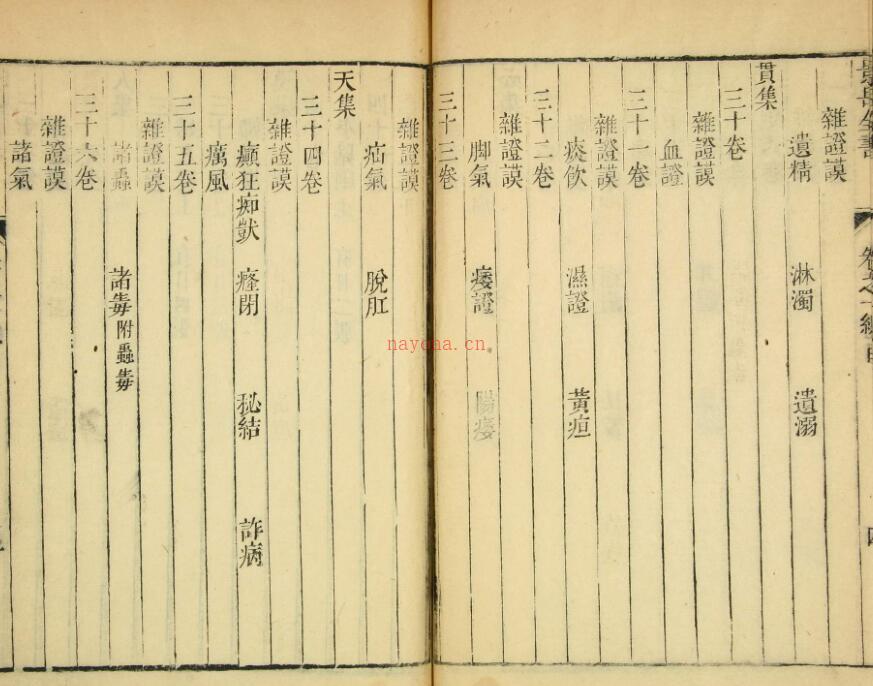 景岳全書
雜證謨
遺精 淋濁 遺溺
貫集
三十卷
雜證謨
血證
三十一卷
雜證謨
痰飲 濕證 黃疸
三十二卷
雜證謨
脚氣 痿證 陽痿
三十三卷
雜證謨
疝氣 脫肛
天集
三十四卷
雜證謨
癲狂痴獃 癃閉 秘結 詐病
癘風
三十五卷
雜證謨
諸蟲 諸毒附蠱毒
三十六卷
雜證謨
諸氣
nayona.cn